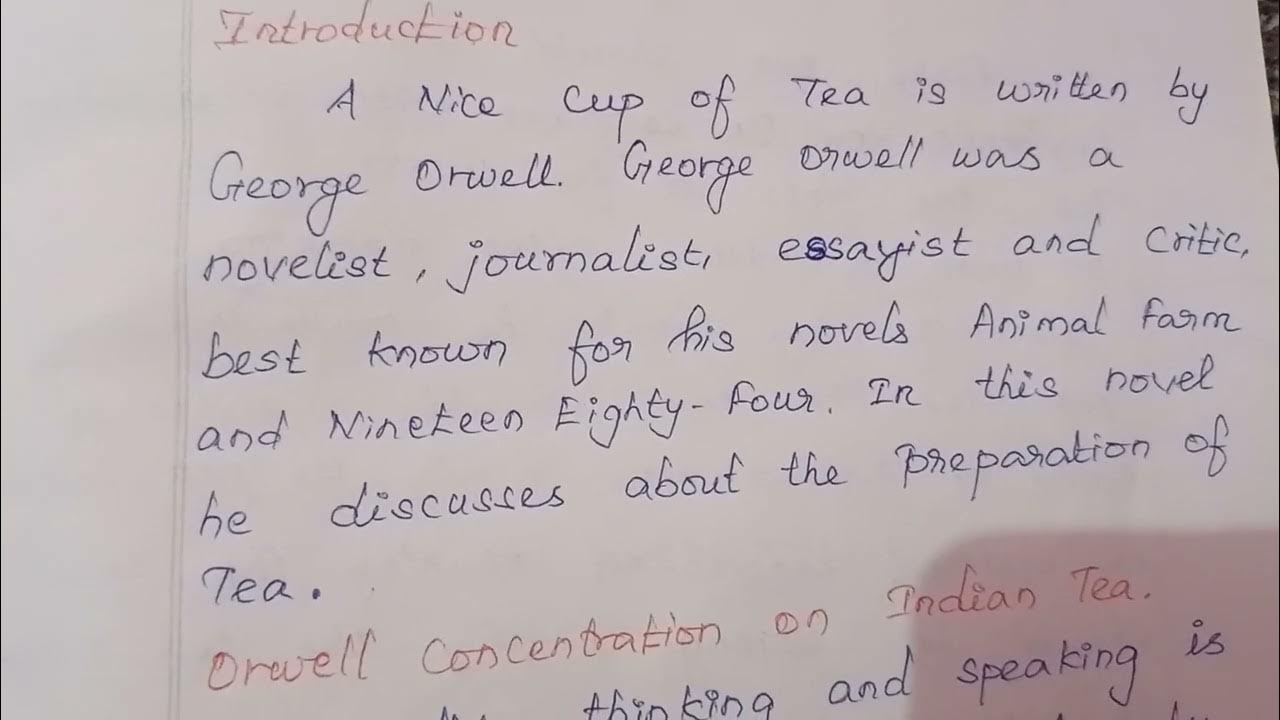 Introduction
A Nice Cup of Tea is written by
George Orwell. George Orwell was a
novelist, journalist, essayist and critic,
best known for his novels Animal Farm
and Nineteen Eighty-Four. In this novel
he discusses about the preparation of
Tea.
Orwell Concentration on Indian Tea.
thinking and speaking is